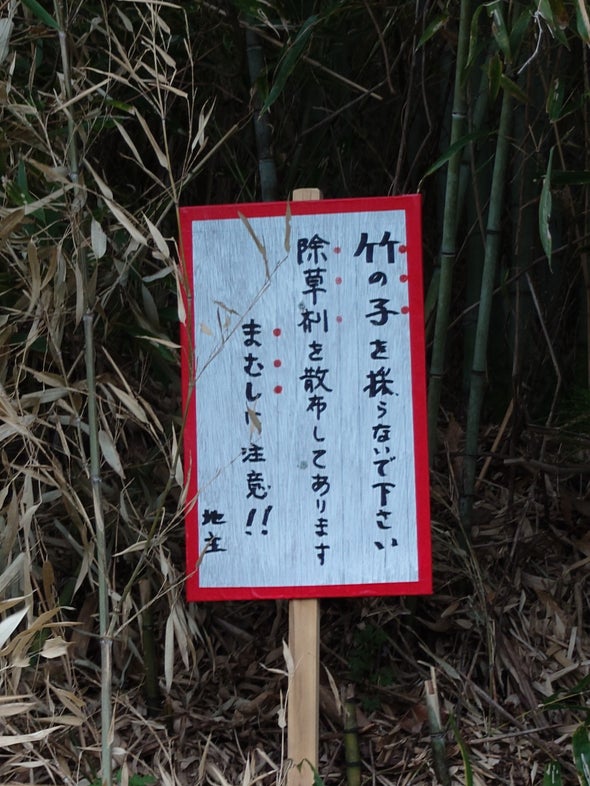 竹の子を採らないで下さい
除草剤を散布してあります
まむしに注意!!
地主